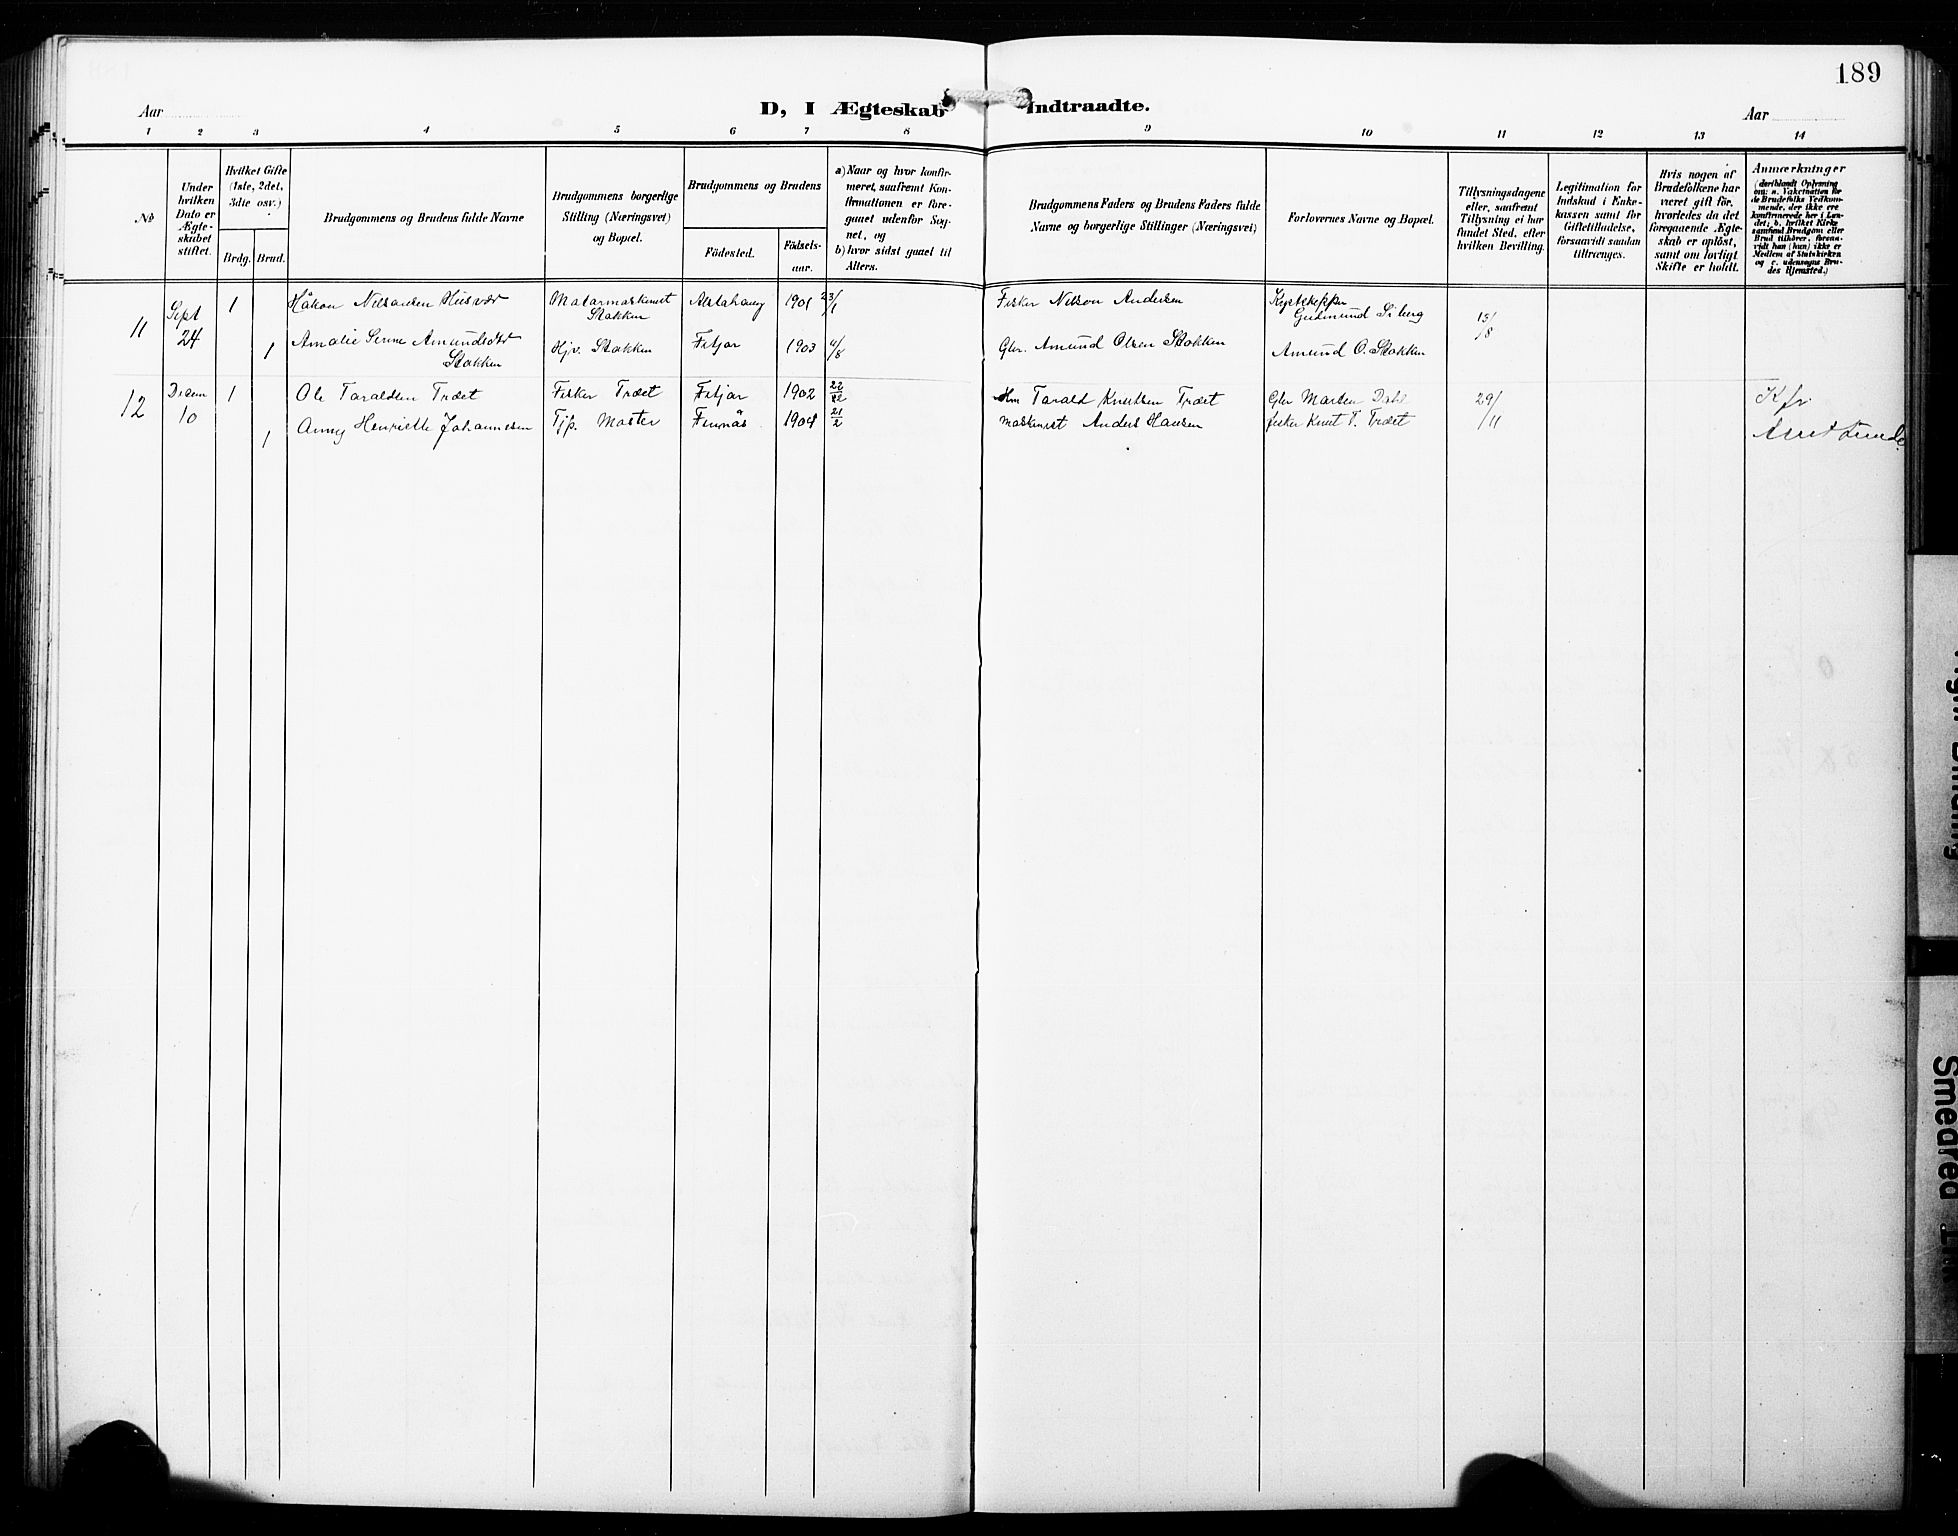 189
Aar
D, I Ægteskab Indtraadte.
Aar
1 2 3 4 5 6 7 8 9 10 11 12 13 14
№
Under hvilken Dato er Ægte-skabet stiftet.
Hvilket Gifte (1ste, 2det, 3die osv.)
Brdg. Brud.
Brudgommens og Brudens fulde Navne
Brudgommens borgerlige Stilling (Næringsvei) og Bopæl.
Brudgommens og Brudens
Födested. Födsels-aar.
a) Naar og hvor konfir-meret, saafremt Kon-firmationen er fore-gaaet udenfor Sog-net, og
b) hvor sidst gaaet til Alters.
Brudgommens Faders og Brudens Faders fulde Navne og borgerlige Stillinger (Næringsvei)
Forlovernes Navne og Bopæl.
Tillysningsdagene eller, saafremt Tillysning ei har fundet Sted, efter hvilken Bevilling.
Legitimation for Indskud i Enke-kassen samt for Giftetilladelse, forsaavidt saadan tiltrænges.
Hvis nogen af Brudefolkene har været gift før, hvorledes da det foregaaende Ægte-skab er oplöst, samt om lovligt Skifte er holdt.
Anmærkninger
(deriblandt Oplysning om: a. Vakcination for de Brudefolks Vedkom-mende, der ikke ere konfirmerede her i Lan-det; b. hvilket Kirke-samfund Brudgom eller Brud tilhører, foran-vidt han (hun) ikke er Medlem af Statskirken og c. udensogns Bru-des Hjemsted.)
11 Sept 24 1 Håkon Nilsansen Husvær Motormaskinist Stokken Alstahaug 1901 23/1 Fisker Nilson Andersen Gudmund Siberg 15/8
1 Amalie Serine Amundsdtr Stokken Hjv. Stokken Fitjar 1903 4/8 Gbr. Amund Olsen Stokken Amund O. Stokken
12 Decem 10 1 Ole Taraldsen Træet Fisker Træet Fitjar 1902 22/12 Hm Tarald Knutsen Træet Gbr Marten Dahl 29/11 Kfr.
1 Anny Henriette Johannesen Tjp. Moster Finnås 1904 21/2 maskinist Anders Hansen fisker Knut T. Træet
Smeared Ink